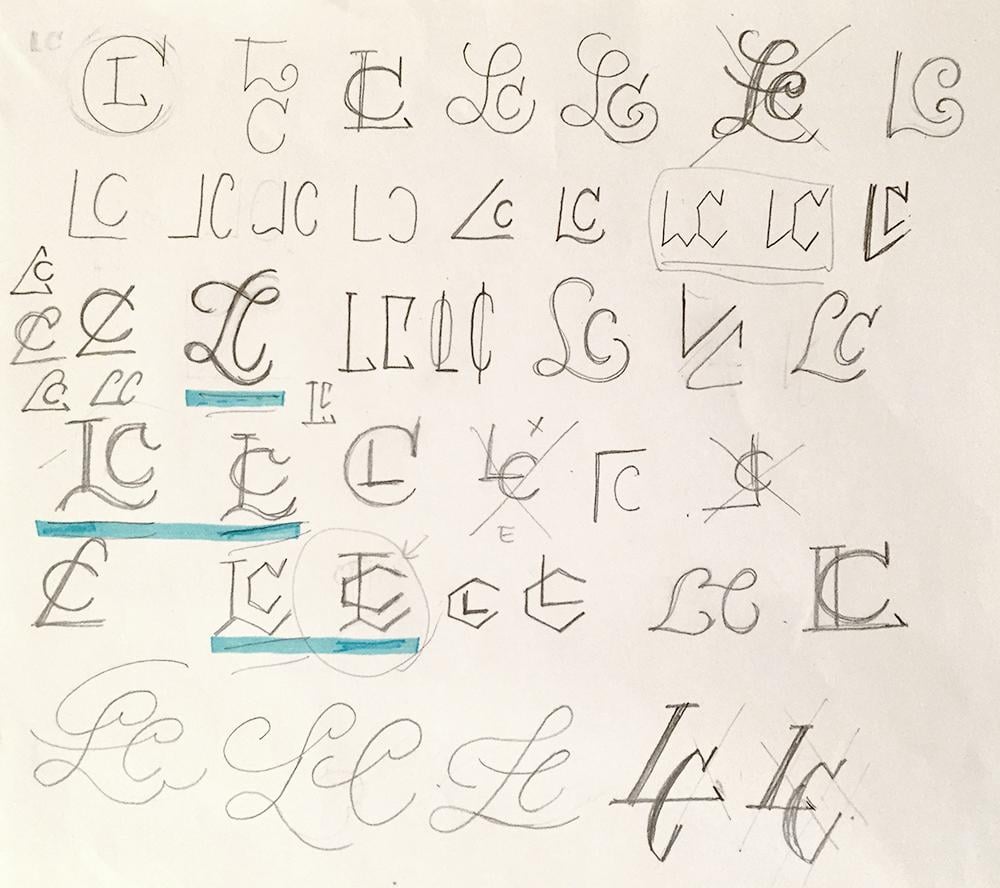 LC
LC LC LC LC LC LC LC
LC LC LC LC LC LC LC LC LC
LC
LC LC LC LC LC LC LC LC LC
LC LC LC
LC LC LC LC LC LC
E
LC LC LC LC LC LC LC
LC LC LC LC LC